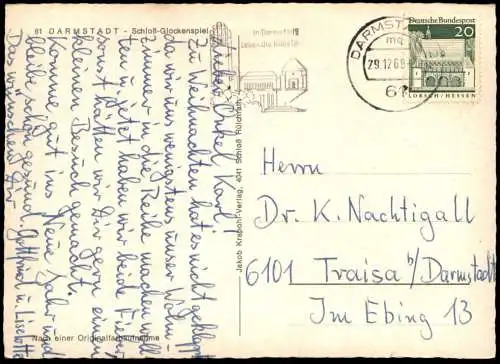 61 DARMSTADT - Schloß-Glockenspiel
Lieber Onkel Karl!
Zu Weihnachten hat es nicht geklappt,
da wir uns wenigstens unser Wohn-
zimmer in die Reihe machen woll-
ten u. jetzt haben wir beide Fieber,
sonst hätten wir Dir gern einen
kleinen Besuch gemacht.
Komme gut ins Neue Jahr und
bleibe schön gesund.
Das wünschen Dir Gottfried u. Liselotte
Nach einer Originalfarbaufnahme
Jakob Krapohl-Verlag, 4041 Schloß Hülchrath
In Darmstadt
leben die Künste
DARMSTADT
29.12.69
61
Deutsche Bundespost
20
LORSCH/HESSEN
Herrn
Dr. K. Nachtigall
6101 Traisa b/Darmstadt
Im Ebing 13